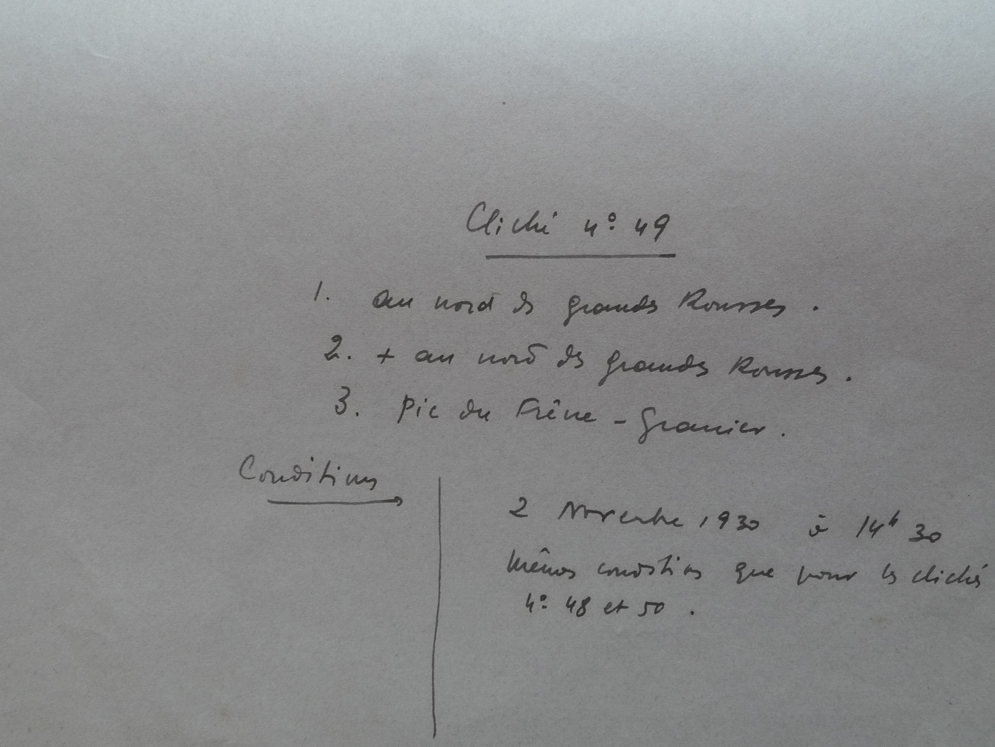 Cliché n° 49
1. au nord des grandes Rousses.
2. + au nord des grandes Rousses.
3. Pic du Frêne - Granier.
Conditions
2 Novembre 1930 à 14h 30
Mêmes conditions que pour les clichés
n° 48 et 50.